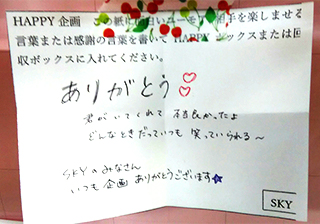 HAPPY 企画 この紙に面白いユーモア 相手を楽しませる
言葉または感謝の言葉を書いて HAPPY ボックスまたは回
収ボックスに入れてください。
ありがとう
君がいてくれて 良かったよ
どんなときだっていつも 笑っていられる～
SKYのみなさん
いつも企画ありがとうございます
SKY